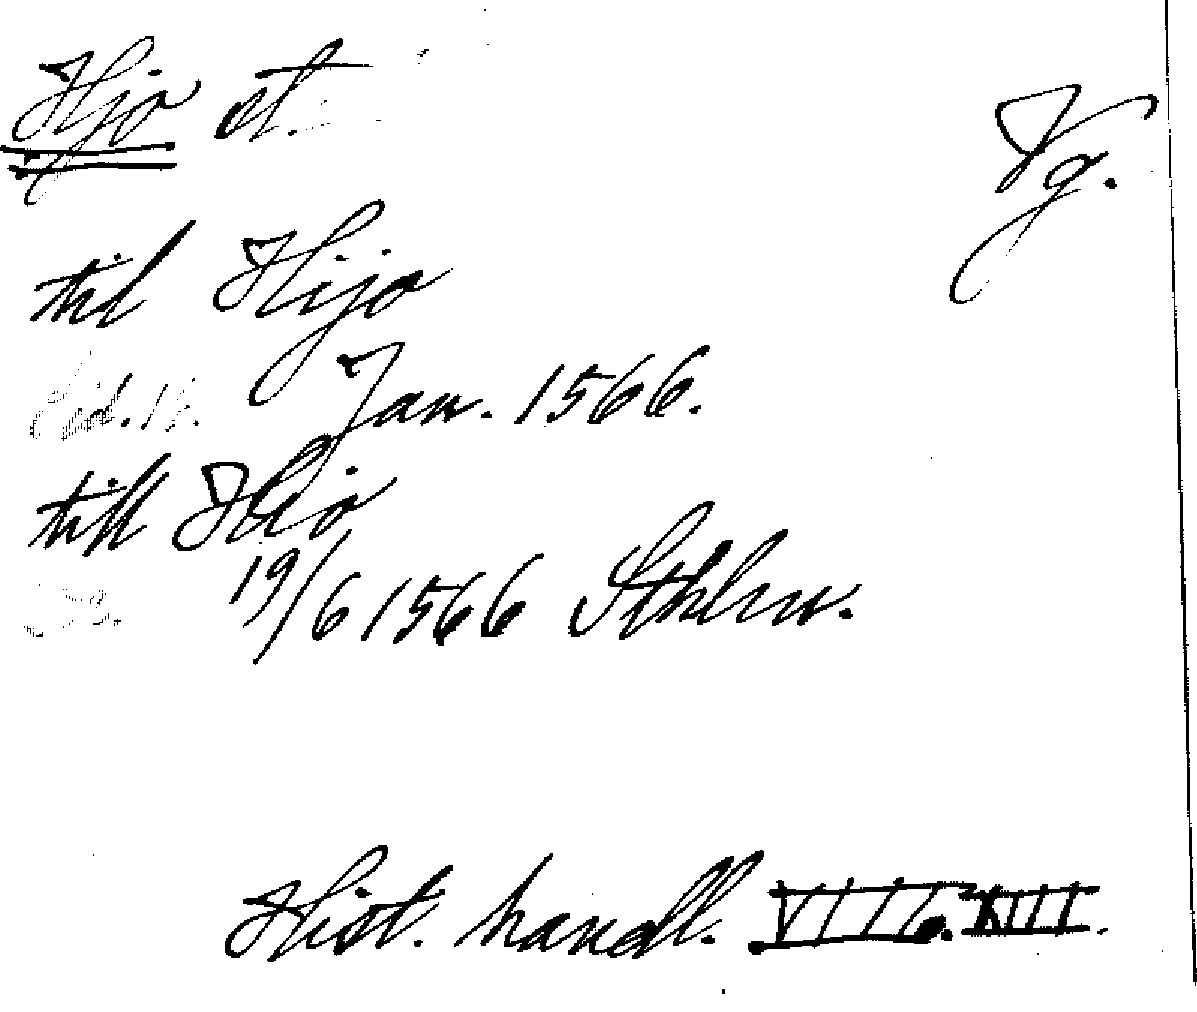 Hjo st.
Vg.
till Hijo
Jan. 1566.
till Hiio
19/6 1566 Sthlm.
Hist. handl. XIII.